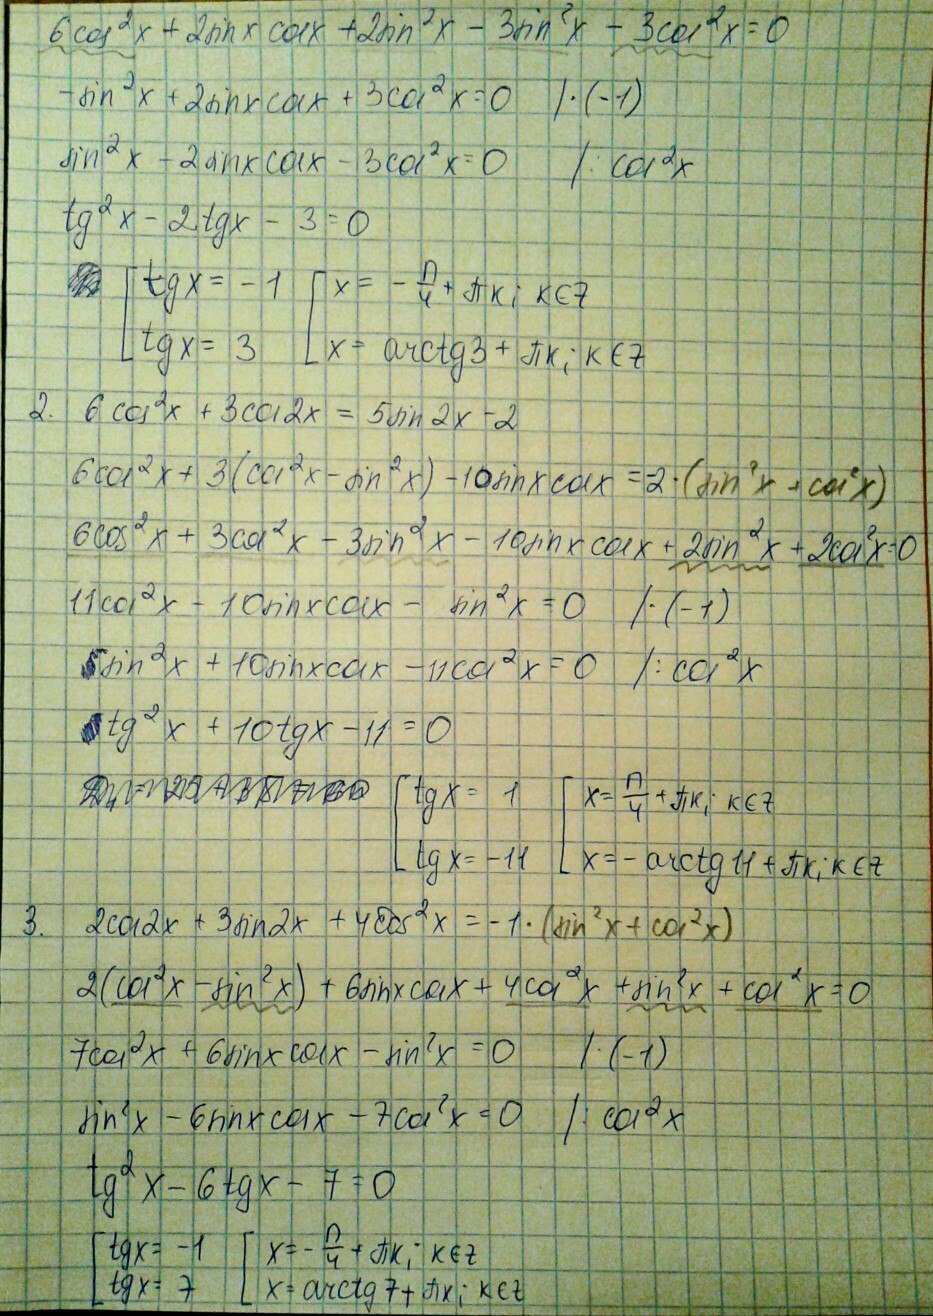 6cos²x + 2sinx cosx + 2sin²x - 3sin²x - 3cos²x = 0
-sin²x + 2sinx cosx + 3cos²x = 0 /·(-1)
sin²x - 2sinx cosx - 3cos²x = 0 /: cos²x
tg²x - 2tgx - 3 = 0
[tgx = -1 [x = -π/4 + πk; k∈Z
[tgx = 3 [x = arctg3 + πk; k∈Z
2. 6cos²x + 3cos2x = 5sin2x - 2
6cos²x + 3(cos²x - sin²x) - 10sinx cosx = -2·(sin²x + cos²x)
6cos²x + 3cos²x - 3sin²x - 10sinx cosx + 2sin²x + 2cos²x = 0
11cos²x - 10sinx cosx - sin²x = 0 /·(-1)
sin²x + 10sinx cosx - 11cos²x = 0 /: cos²x
tg²x + 10tgx - 11 = 0
[tgx = 1 [x = π/4 + πk; k∈Z
[tgx = -11 [x = -arctg11 + πk; k∈Z
3. 2cos2x + 3sin2x + 4cos²x = -1·(sin²x + cos²x)
2(cos²x - sin²x) + 6sinx cosx + 4cos²x + sin²x + cos²x = 0
7cos²x + 6sinx cosx - sin²x = 0 /·(-1)
sin²x - 6sinx cosx - 7cos²x = 0 /: cos²x
tg²x - 6tgx - 7 = 0
[tgx = -1 [x = -π/4 + πk; k∈Z
[tgx = 7 [x = arctg7 + πk; k∈Z